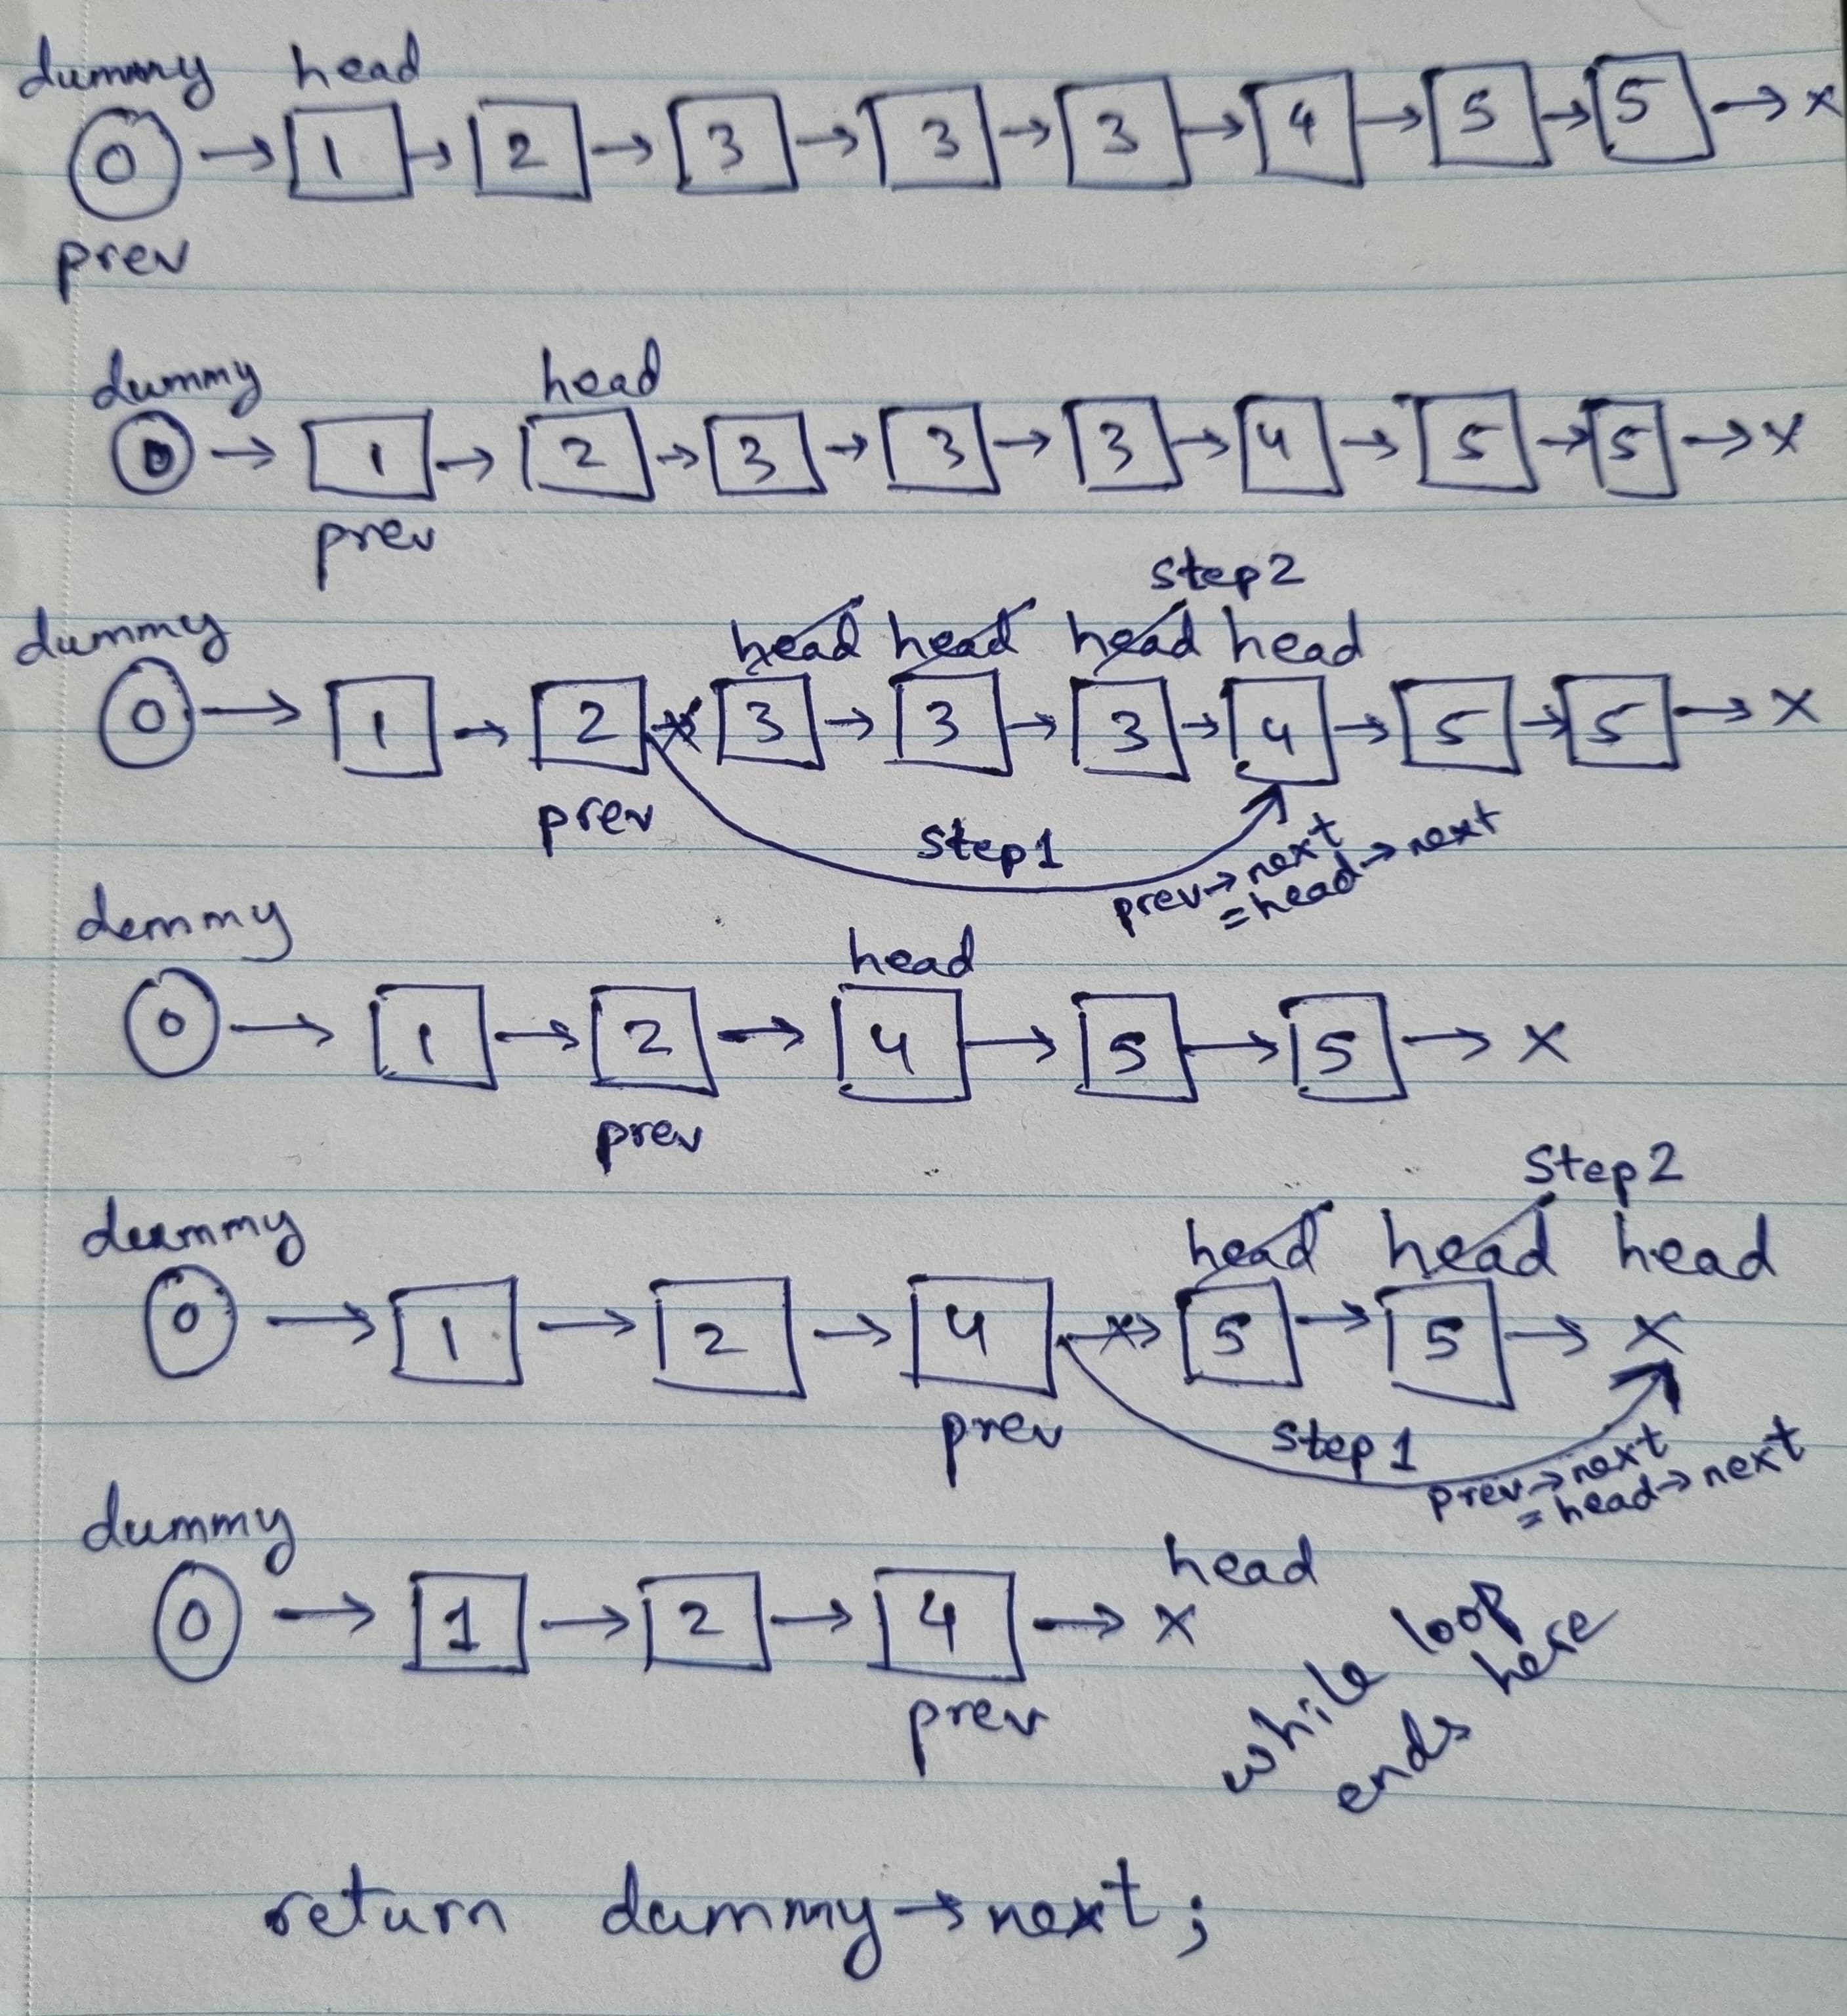 dummy head
0 → 1 → 2 → 3 → 3 → 3 → 4 → 5 → 5 → x
prev
dummy head
0 → 1 → 2 → 3 → 3 → 3 → 4 → 5 → 5 → x
prev
step2
dummy head head head head
0 → 1 → 2 → 3 → 3 → 3 → 4 → 5 → 5 → x
prev step1 prev→next
=head→next
dummy head
0 → 1 → 2 → 4 → 5 → 5 → x
prev
Step2
dummy head head head
0 → 1 → 2 → 4 → 5 → 5 → x
prev step1 prev→next
=head→next
dummy head
0 → 1 → 2 → 4 → x
prev
while loop
ends here
return dummy→next;